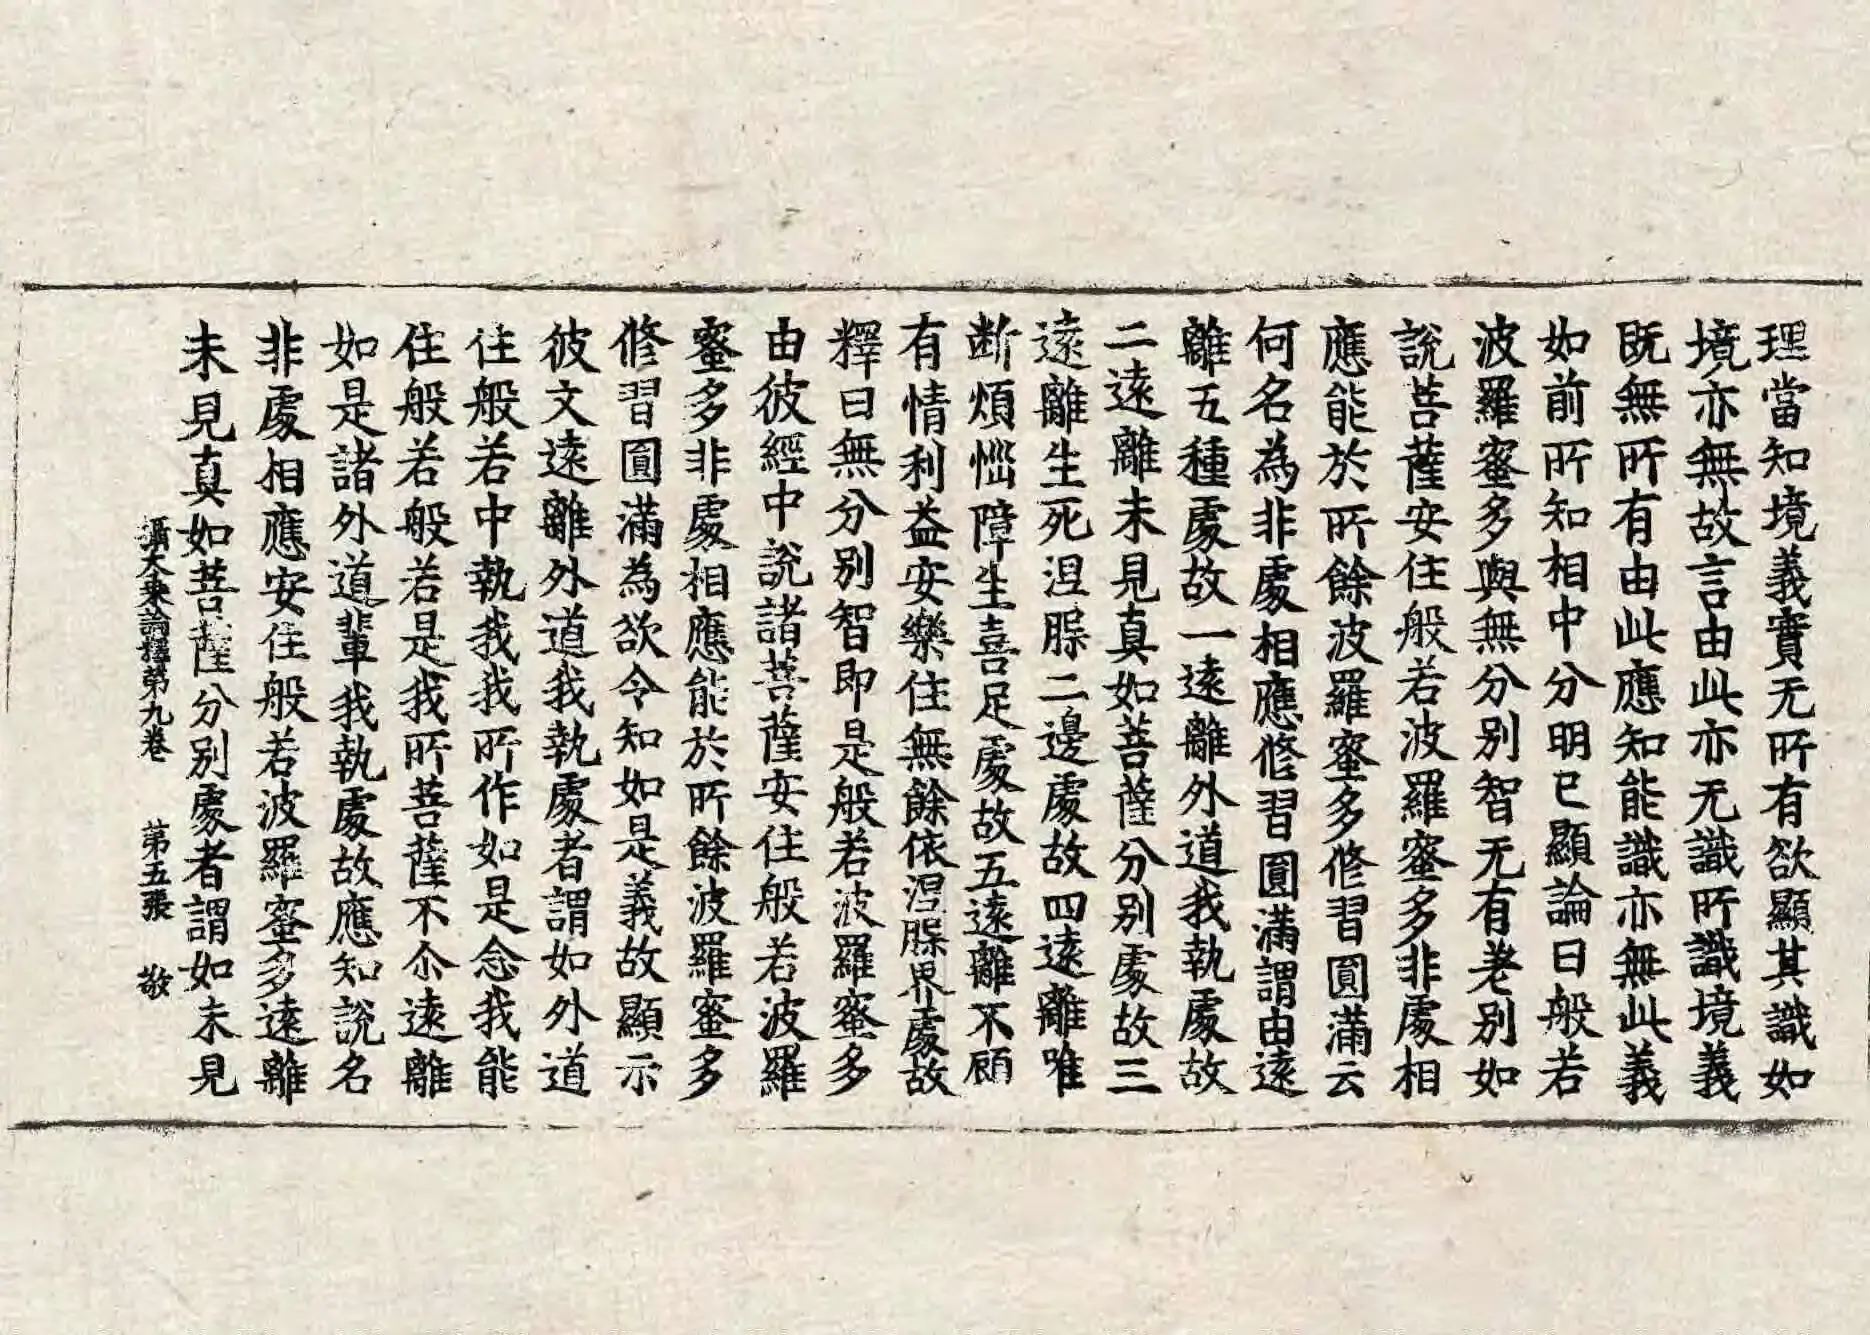 理當知境義實无所有欲顯其識如
境亦無故言由此亦无識所識境義
既無所有由此應知能識亦無此義
如前所知相中分明已顯論曰般若
波羅蜜多與無分別智无有差別如
說菩薩安住般若波羅蜜多非處相
應能於所餘波羅蜜多修習圓滿云
何名為非處相應修習圓滿謂由遠
離五種處故一遠離外道我執處故
二遠離未見真如菩薩分別處故三
遠離生死涅槃二邊處故四遠離唯
断煩惱障生喜足處故五遠離不顧
有情利益安樂住無餘依涅槃界處故
釋曰無分別智即是般若波羅蜜多
由彼經中說諸菩薩安住般若波羅
蜜多非處相應能於所餘波羅蜜多
修習圓滿為欲令知如是義故顯示
彼文遠離外道我執處者謂如外道
住般若中執我我所作如是念我能
住般若般若是我所菩薩不尒遠離
如是諸外道輩我執處故應知說名
非處相應安住般若波羅蜜多遠離
未見真如菩薩分別處者謂如未見
攝大乘論釋第九卷 第五張 敬